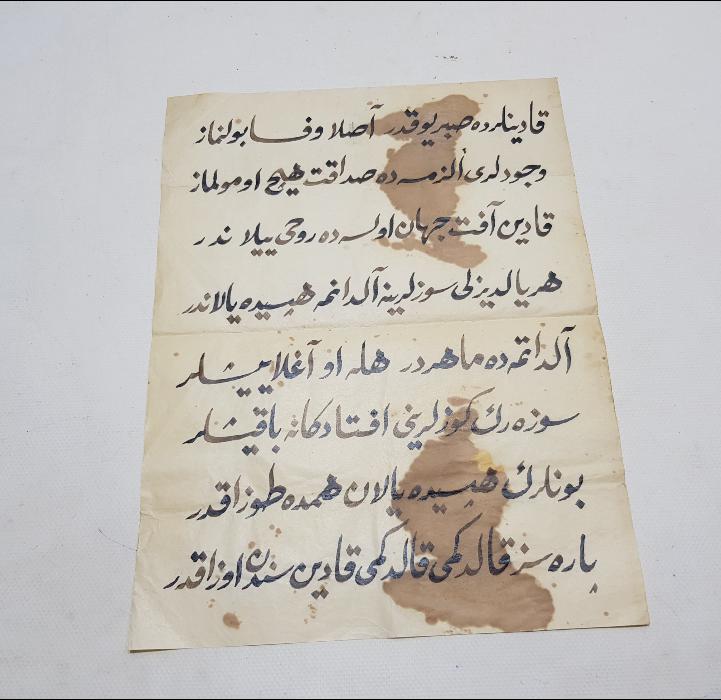 قادینلرده صبر یوقدر آصلا وفا بولنماز
وجودلری ألزمسه ده صداقت هیچ اومولماز
قادین آفت جهان اولسه ده روحی ییلاندر
هر یالدیزلی سوزلرینه آلدانمه هپسیده یالاندر
آلداتمه ده ماهردر هله او آغلاییشلر
سوزه رك كوزلرینی افتادكانه باقیشلر
بونلرك هپسیده یالان همده طوزاقدر
پاره سز قالدكمی قالدكمی قادین سندن اوزاقدر